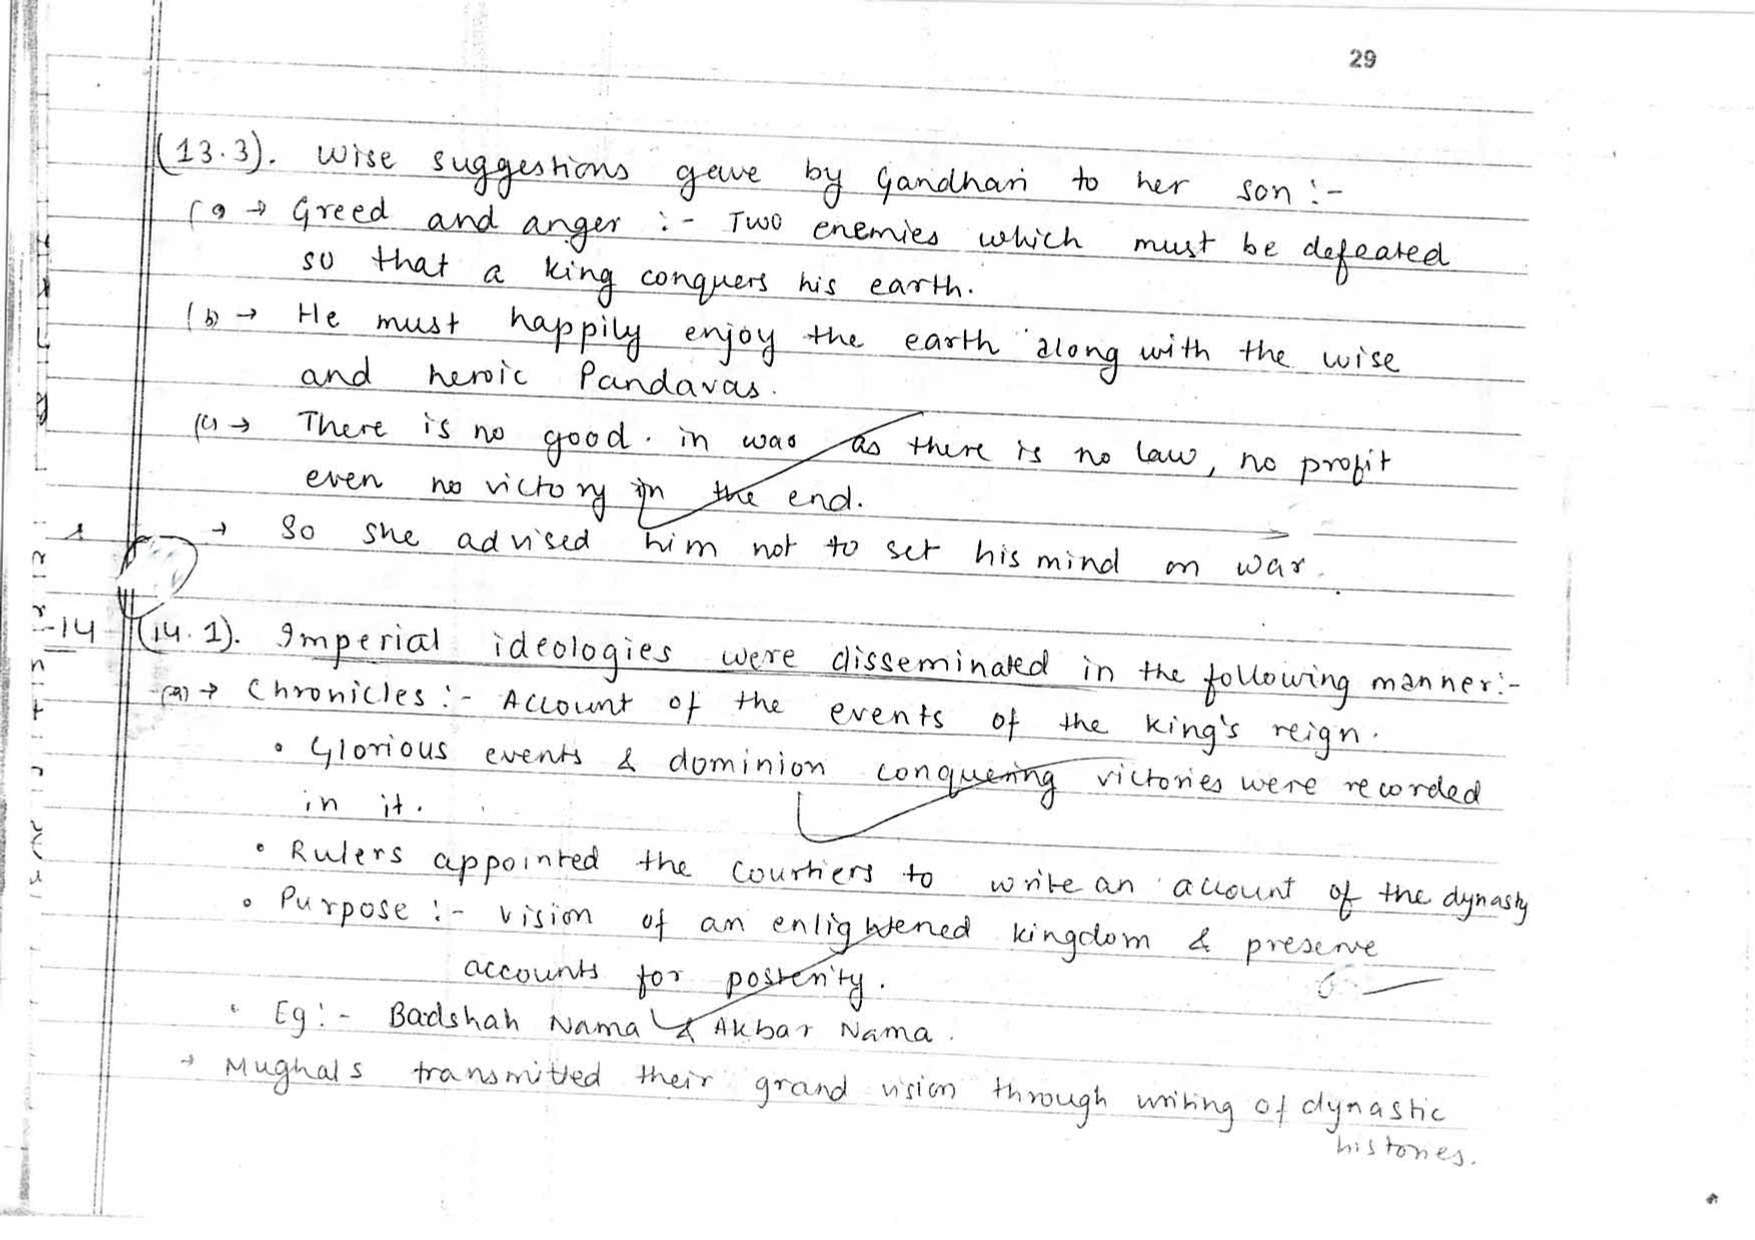 29
(13.3). Wise suggestions gave by Gandhari to her son :-
(a → Greed and anger :- Two enemies which must be defeated
so that a king conquers his earth.
(b) → He must happily enjoy the earth along with the wise
and heroic Pandavas.
(c) → There is no good in war as there is no law, no profit
even no victory in the end.
→ So she advised him not to set his mind on war.
-14 (14.1). Imperial ideologies were disseminated in the following manner:-
(a) → Chronicles :- Account of the events of the king's reign.
• Glorious events & dominion conquering victories were recorded
in it.
• Rulers appointed the courtiers to write an account of the dynasty
• Purpose :- vision of an enlightened kingdom & preserve
accounts for posterity.
• Eg :- Badshah Nama & Akbar Nama.
→ Mughals transmitted their grand vision through writing of dynastic
histories.